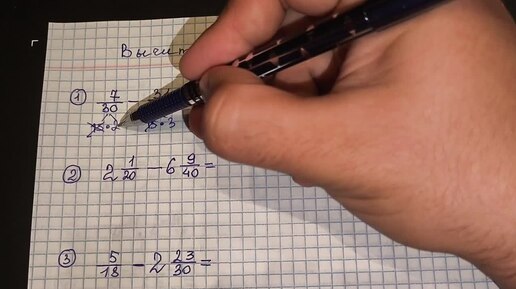 Вычит
① 7/30 -
15·2 15·3
② 2 1/20 - 6 9/40 =
③ 5/18 - 2 23/30 =